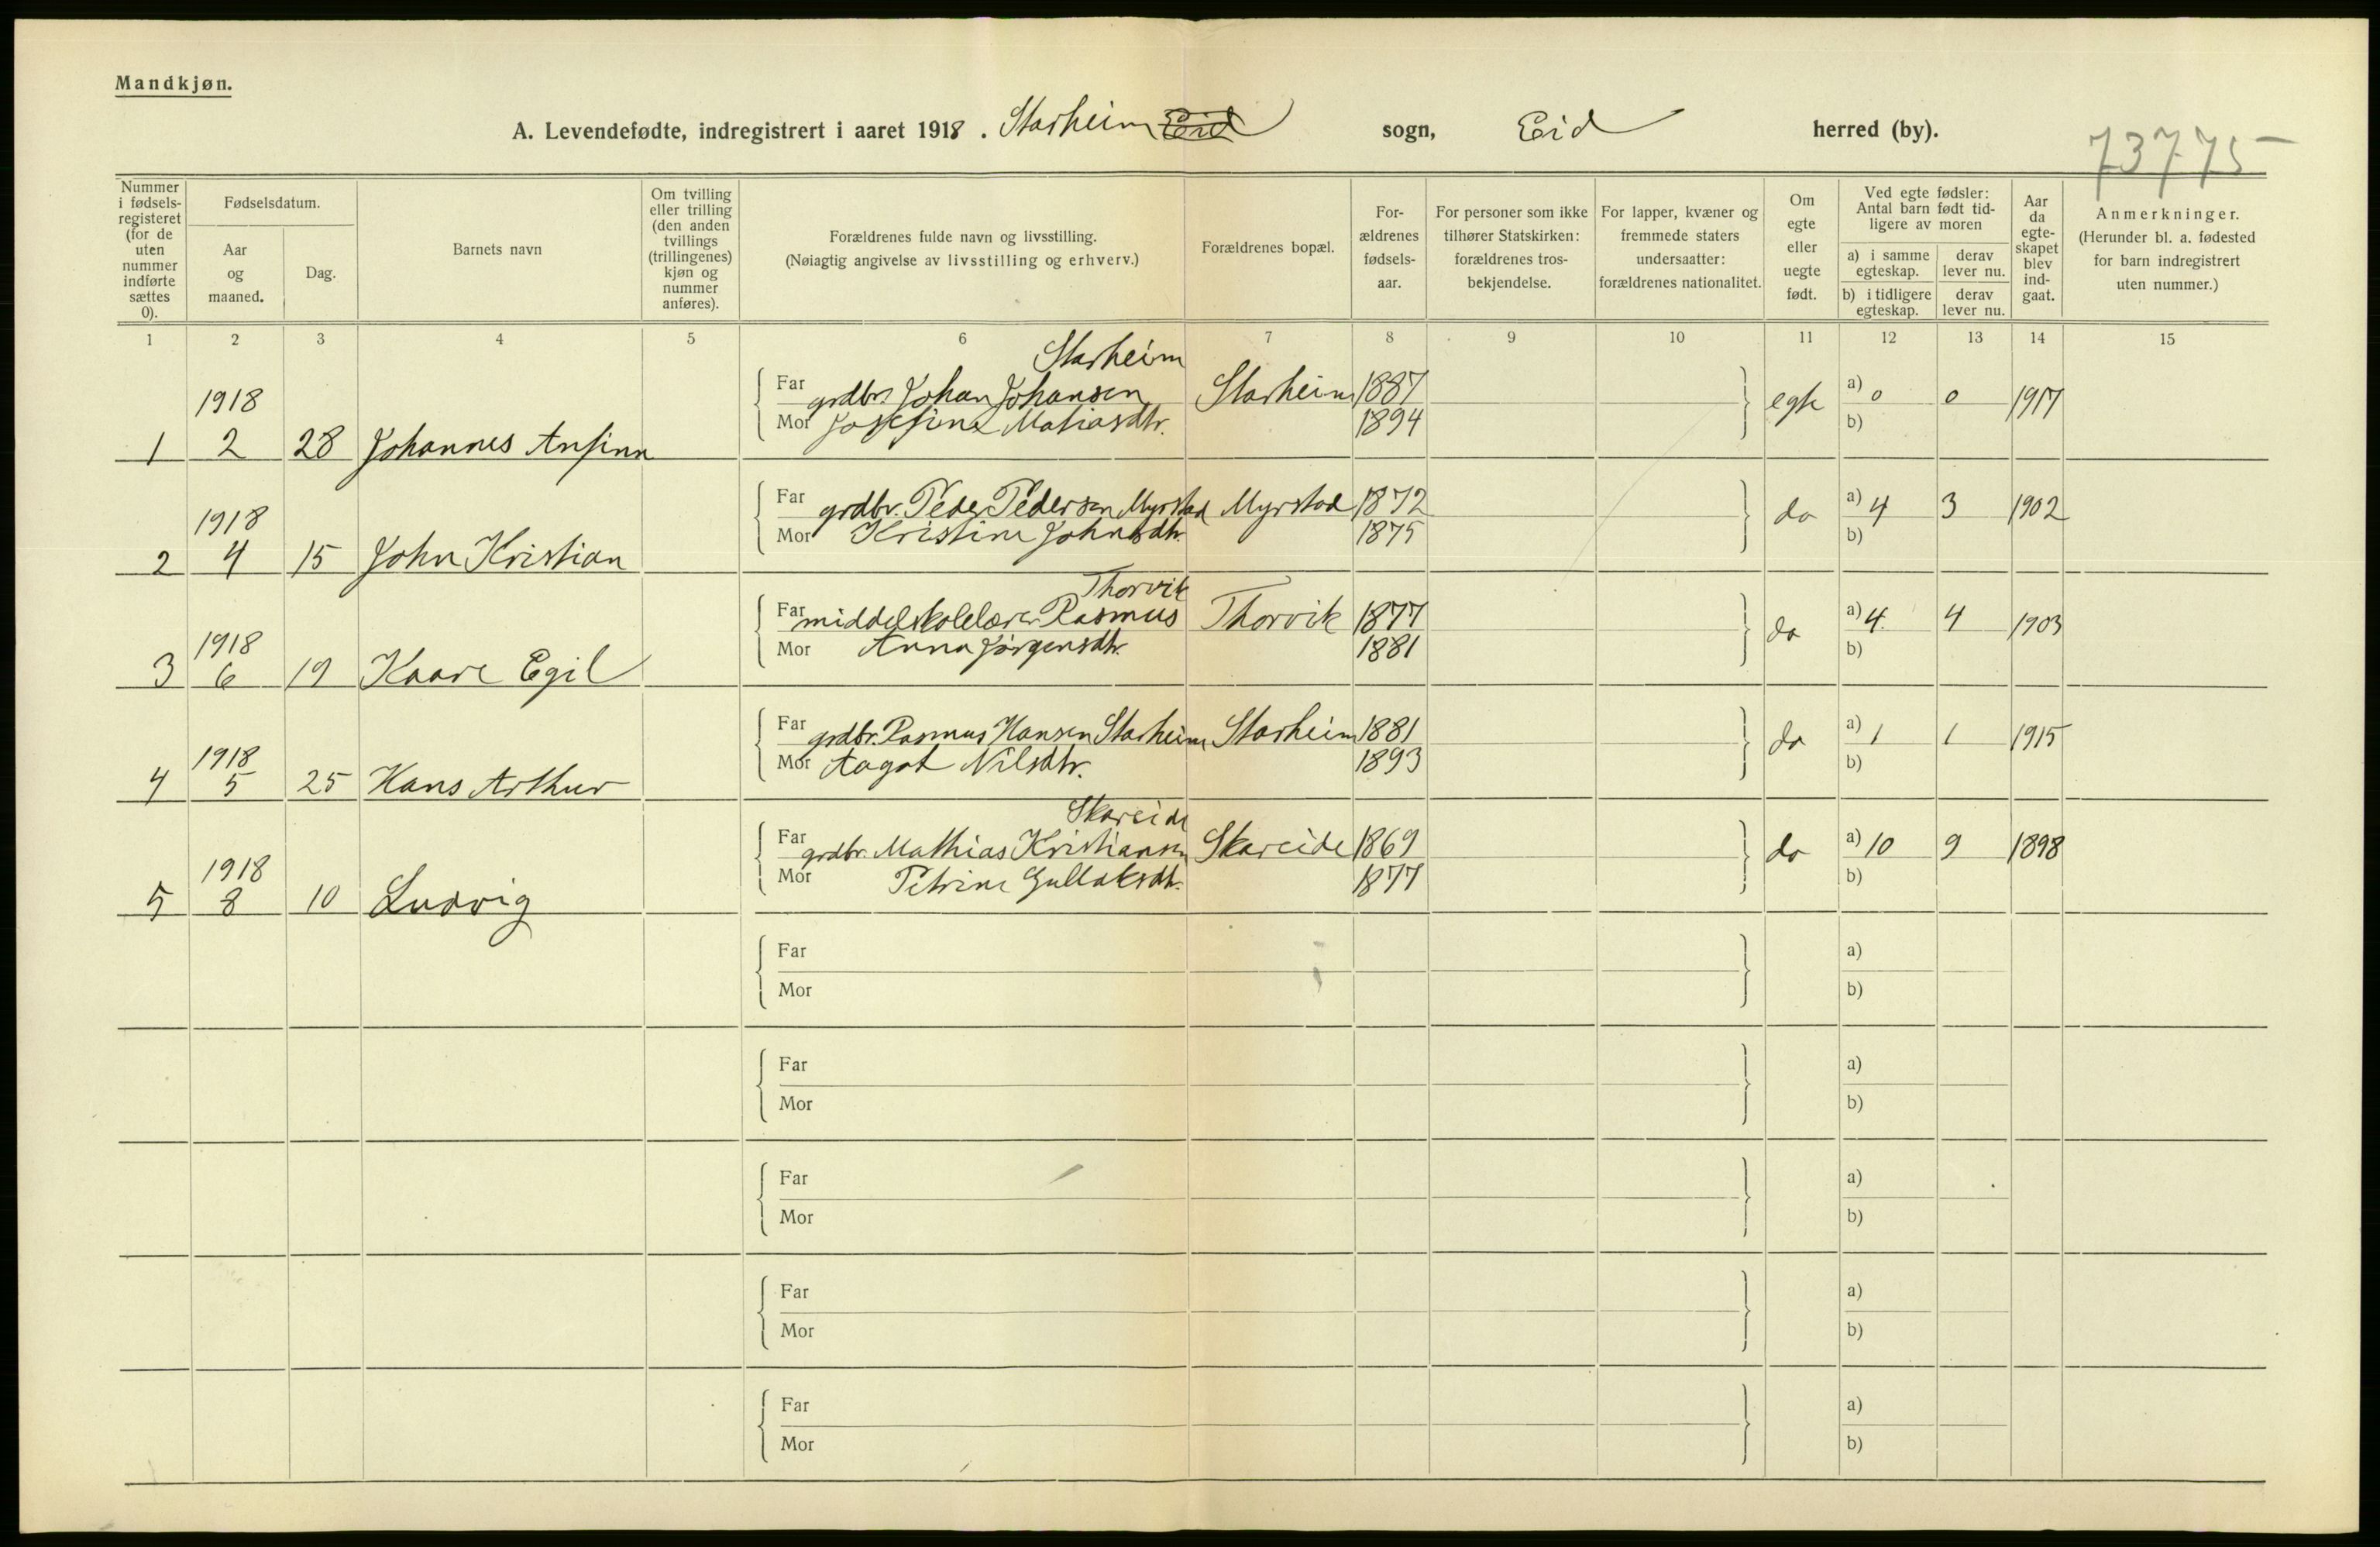 Mandkjøn.
A. Levendefødte, indregistrert i aaret 1918. Starheim Eid sogn, Eid herred (by).
73775
Nummer i fødsels-registeret (for de uten nummer indførte sættes 0).
Fødselsdatum.
Aar og maaned.
Dag.
Barnets navn
Om tvilling eller trilling (den anden tvillings (trillingenes) kjøn og nummer anføres).
Forældrenes fulde navn og livsstilling.
(Nøiagtig angivelse av livsstilling og erhverv.)
Forældrenes bopæl.
For-ældrenes fødsels-aar.
For personer som ikke tilhører Statskirken: forældrenes tros-bekjendelse.
For lapper, kvæner og fremmede staters undersaatter: forældrenes nationalitet.
Om egte eller uegte født.
Ved egte fødsler: Antal barn født tid-ligere av moren
a) i samme egteskap.
derav lever nu.
b) i tidligere egteskap.
derav lever nu.
Aar da egte-skapet blev ind-gaat.
Anmerkninger.
(Herunder bl. a. fødested for barn indregistrert uten nummer.)
1 2 3 4 5 6 7 8 9 10 11 12 13 14 15
Starheim
1918 Far grdbr. Johan Johansen Starheim 1887 egte a) 0 0 1917
Mor Josefine Matiasdtr. 1894 b)
1 2 28 Johannes Anfinn
1918 Far grdbr. Peder Pedersen Myrstad Myrstad 1872 do a) 4 3 1902
Mor Kristine Johnsdtr. 1875 b)
2 4 15 John Kristian
Thorvik
Far middelskolelærer Rasmus Thorvik 1877 do a) 4 4 1903
1918 Mor Anna Jørgensdtr. 1881 b)
3 6 19 Kaare Egil
Far grdbr. Rasmus Hansen Starheim Starheim 1881 do a) 1 1 1915
1918 Mor Aagot Nilsdtr. 1893 b)
4 5 25 Hans Arthur
Skareide
Far grdbr. Mathias Kristiansen Skareide 1869 do a) 10 9 1898
1918 Mor Petrine Gullaksdtr. 1877 b)
5 8 10 Ludvig
Far a)
Mor b)
Far a)
Mor b)
Far a)
Mor b)
Far a)
Mor b)
Far a)
Mor b)